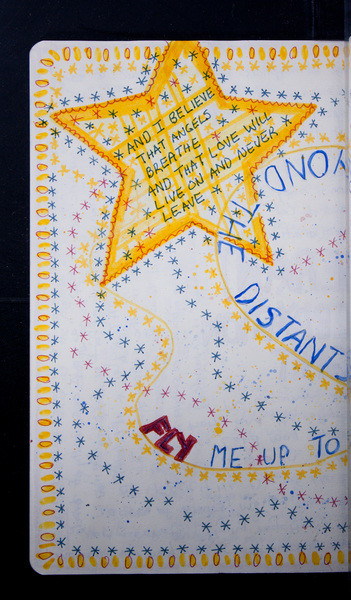 AND I BELIEVE
THAT ANGELS
BREATHE
AND THAT LOVE WILL
LIVE ON AND NEVER
LEAVE
FLY ME UP TO
THE DISTANT
YOND